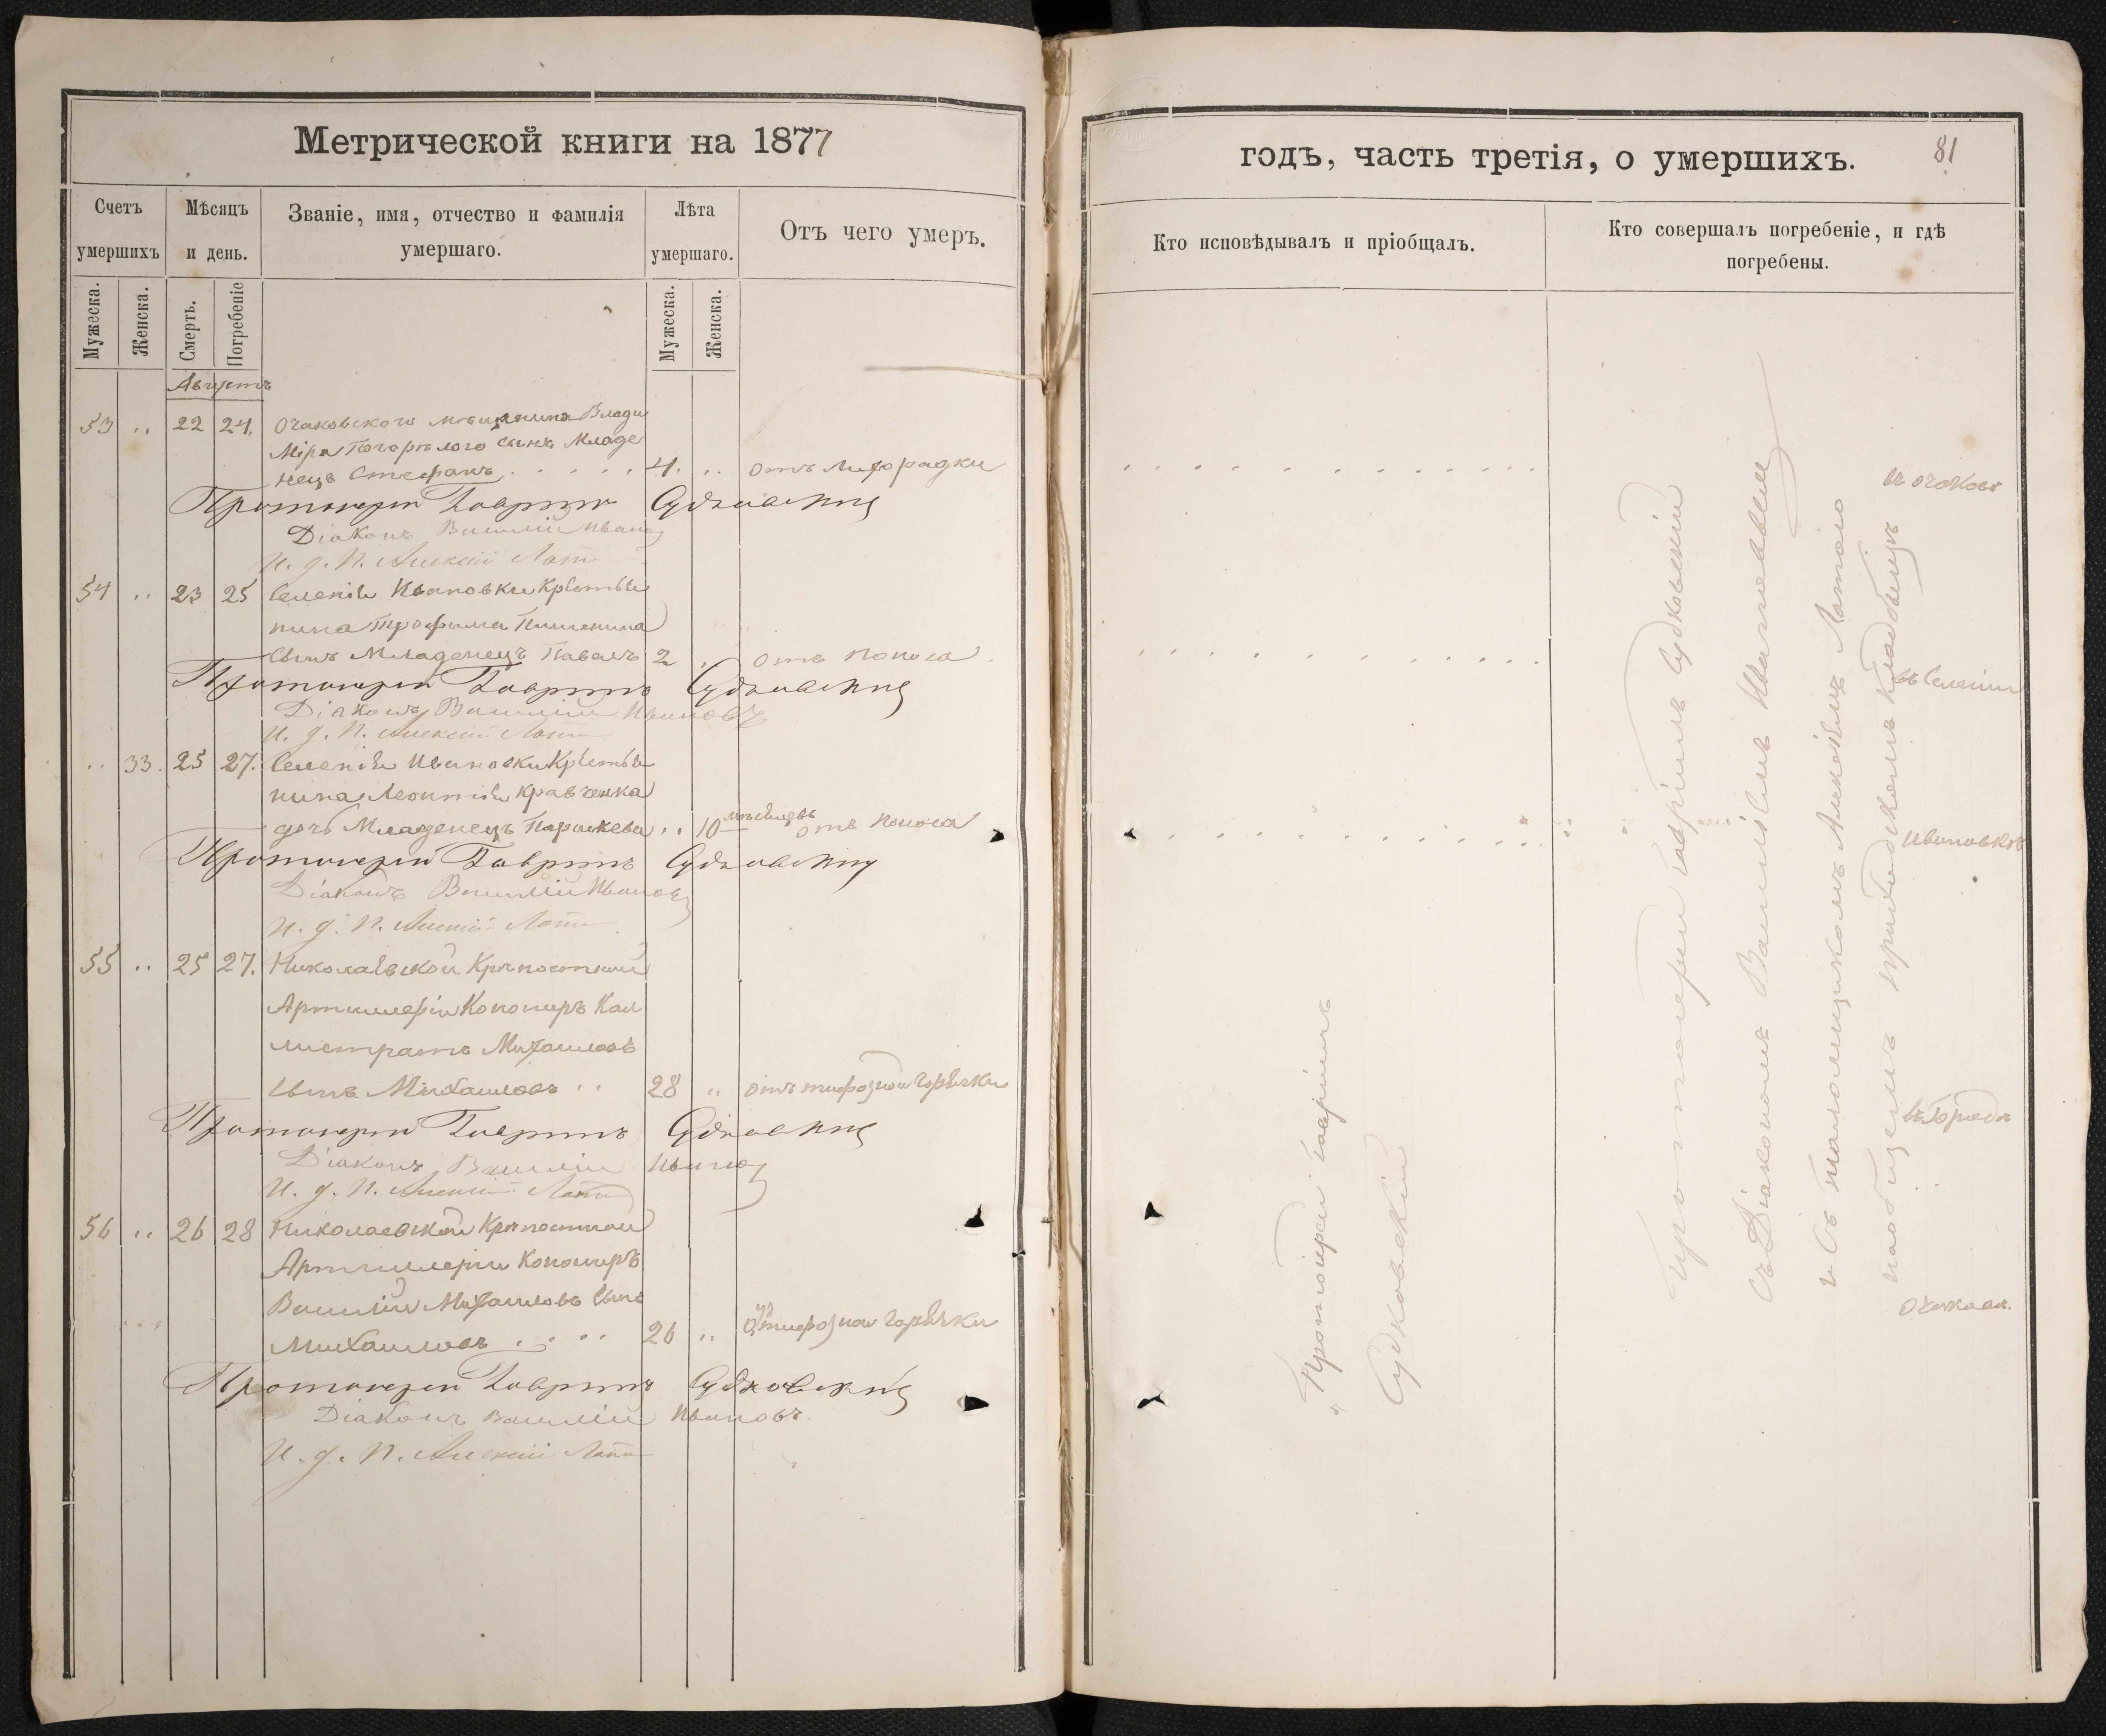 Метрической книги на 1877
Счетъ умершихъ
Мѣсяцъ и день.
Званіе, имя, отчество и фамилія умершаго.
Лѣта умершаго.
Отъ чего умеръ.
Мужеска.
Женска.
Смерть.
Погребеніе
Мужеска.
Женска.
Августъ
53 .. 22 24. Очаковского мѣщанина Влади
міра Погорѣлого сынъ Младе
нецъ Стефанъ . . . . . 4. .. отъ лихорадки
Протоиерей Гавріилъ Судковскій
Діаконъ Василій Иванов
И. д. П. Алексій
54 .. 23 25 Селенія Ивановки Крестья
нина Трофима
сынъ Младенецъ Павелъ 2 .. отъ поноса
Протоиерей Гавріилъ Судковскій
Діаконъ Василій Ивановъ
И. д. П. Алексій
.. 33. 25 27. Селенія Ивановки Крестья
нина Леонтія Кравченка
дочь Младенецъ Параскева .. 10 мѣсяцевъ отъ поноса
Протоиерей Гавріилъ Судковскій
Діаконъ Василій Иванов
И. д. П. Алексій
55 .. 25 27. Николаевской Крѣпостной
Артиллеріи Канониръ Кал
листратъ Михаиловъ
сынъ Михаиловъ .. 28 .. отъ тифозной горячки
Протоиерей Гавріилъ Судковскій
Діаконъ Василій Иванов
И. д. П. Алексій
56 .. 26 28 Николаевской Крѣпостной
Артиллеріи Канониръ
Василій Михаиловъ сынъ
Михаиловъ . . . .. 26 .. отъ тифозной горячки
Протоиерей Гавріилъ Судковскій
Діаконъ Василій Ивановъ
И. д. П. Алексій
годъ, часть третія, о умершихъ.
81
Кто исповѣдывалъ и пріобщалъ.
Кто совершалъ погребеніе, и гдѣ погребены.
Протоіерей Гавріилъ
Судковскій
Протоіерей Гавріилъ Судковскій
съ Діакономъ Василіемъ Ивановымъ
и съ Псаломщикомъ Алексѣемъ
на общемъ приходскомъ кладбищѣ
въ Очаковѣ
въ Селеніи
Ивановкѣ
въ Городѣ
Очаковѣ.